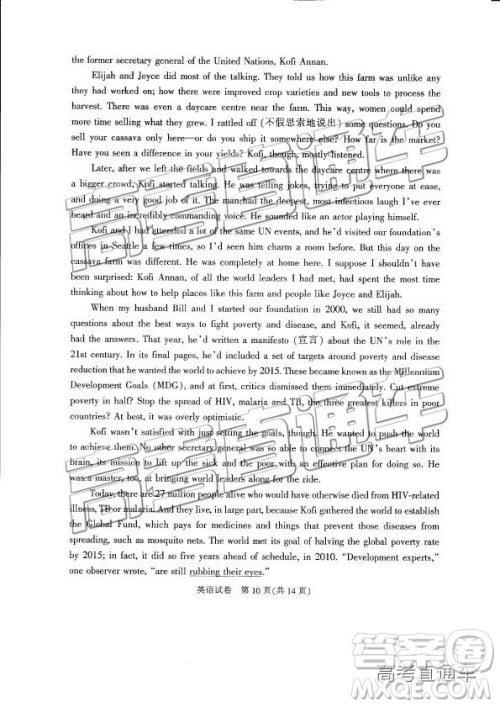 the former secretary general of the United Nations, Kofi Annan.
Elijah and Joyce did most of the talking. They told us how this farm was unlike any
they had worked on; how there were improved crop varieties and new tools to process the
harvest. There was even a daycare centre near the farm. This way, women could spend
more time selling what they grew. I rattled off (不假思索地说出) some questions. Do you
sell your cassava only here—or do you ship it somewhere else? How far is the market?
Have you seen a difference in your yields? Kofi, though, mostly listened.
Later, after we left the fields and walked towards the daycare centre where there was
a bigger crowd, Kofi started talking. He was telling jokes, trying to put everyone at ease,
and doing a very good job of it. The man had the deepest, most infectious laugh I've ever
heard and an incredibly commanding voice. He sounded like an actor playing himself.
Kofi and I had attended a lot of the same UN events, and he'd visited our foundation's
offices in Seattle a few times, so I'd seen him charm a room before. But this day on the
cassava farm was different. He was completely at home here. I suppose I shouldn't have
been surprised: Kofi Annan, of all the world leaders I had met, had spent the most time
thinking about how to help places like this farm and people like Joyce and Elijah.
When my husband Bill and I started our foundation in 2000, we still had so many
questions about the best ways to fight poverty and disease, and Kofi, it seemed, already
had the answers. That year, he'd written a manifesto (宣言) about the UN's role in the
21st century. In its final pages, he'd included a set of targets around poverty and disease
reduction that he wanted the world to achieve by 2015. These became known as the Millennium
Development Goals (MDG), and at first, critics dismissed them immediately. Cut extreme
poverty in half? Stop the spread of HIV, malaria and TB, the three greatest killers in poor
countries? At best, it was overly optimistic.
Kofi wasn't satisfied with just setting the goals, though. He wanted to push the world
to achieve them. No other secretary general was so able to connect the UN's heart with its
brain, its mission to lift up the sick and the poor with an effective plan for doing so. He
was a master, too, at bringing world leaders along for the ride.
Today, there are 27 million people alive who would have otherwise died from HIV-related
illness, TB or malaria. And they live, in large part, because Kofi gathered the world to establish
the Global Fund, which pays for medicines and things that prevent those diseases from
spreading, such as mosquito nets. The world met its goal of halving the global poverty rate
by 2015; in fact, it did so five years ahead of schedule, in 2010. "Development experts,"
one observer wrote, "are still rubbing their eyes."
英语试卷 第 10 页(共 14 页)
高考直通车
高考直通车
高考直通车
答案圈
高考直通车
MXQE.COM